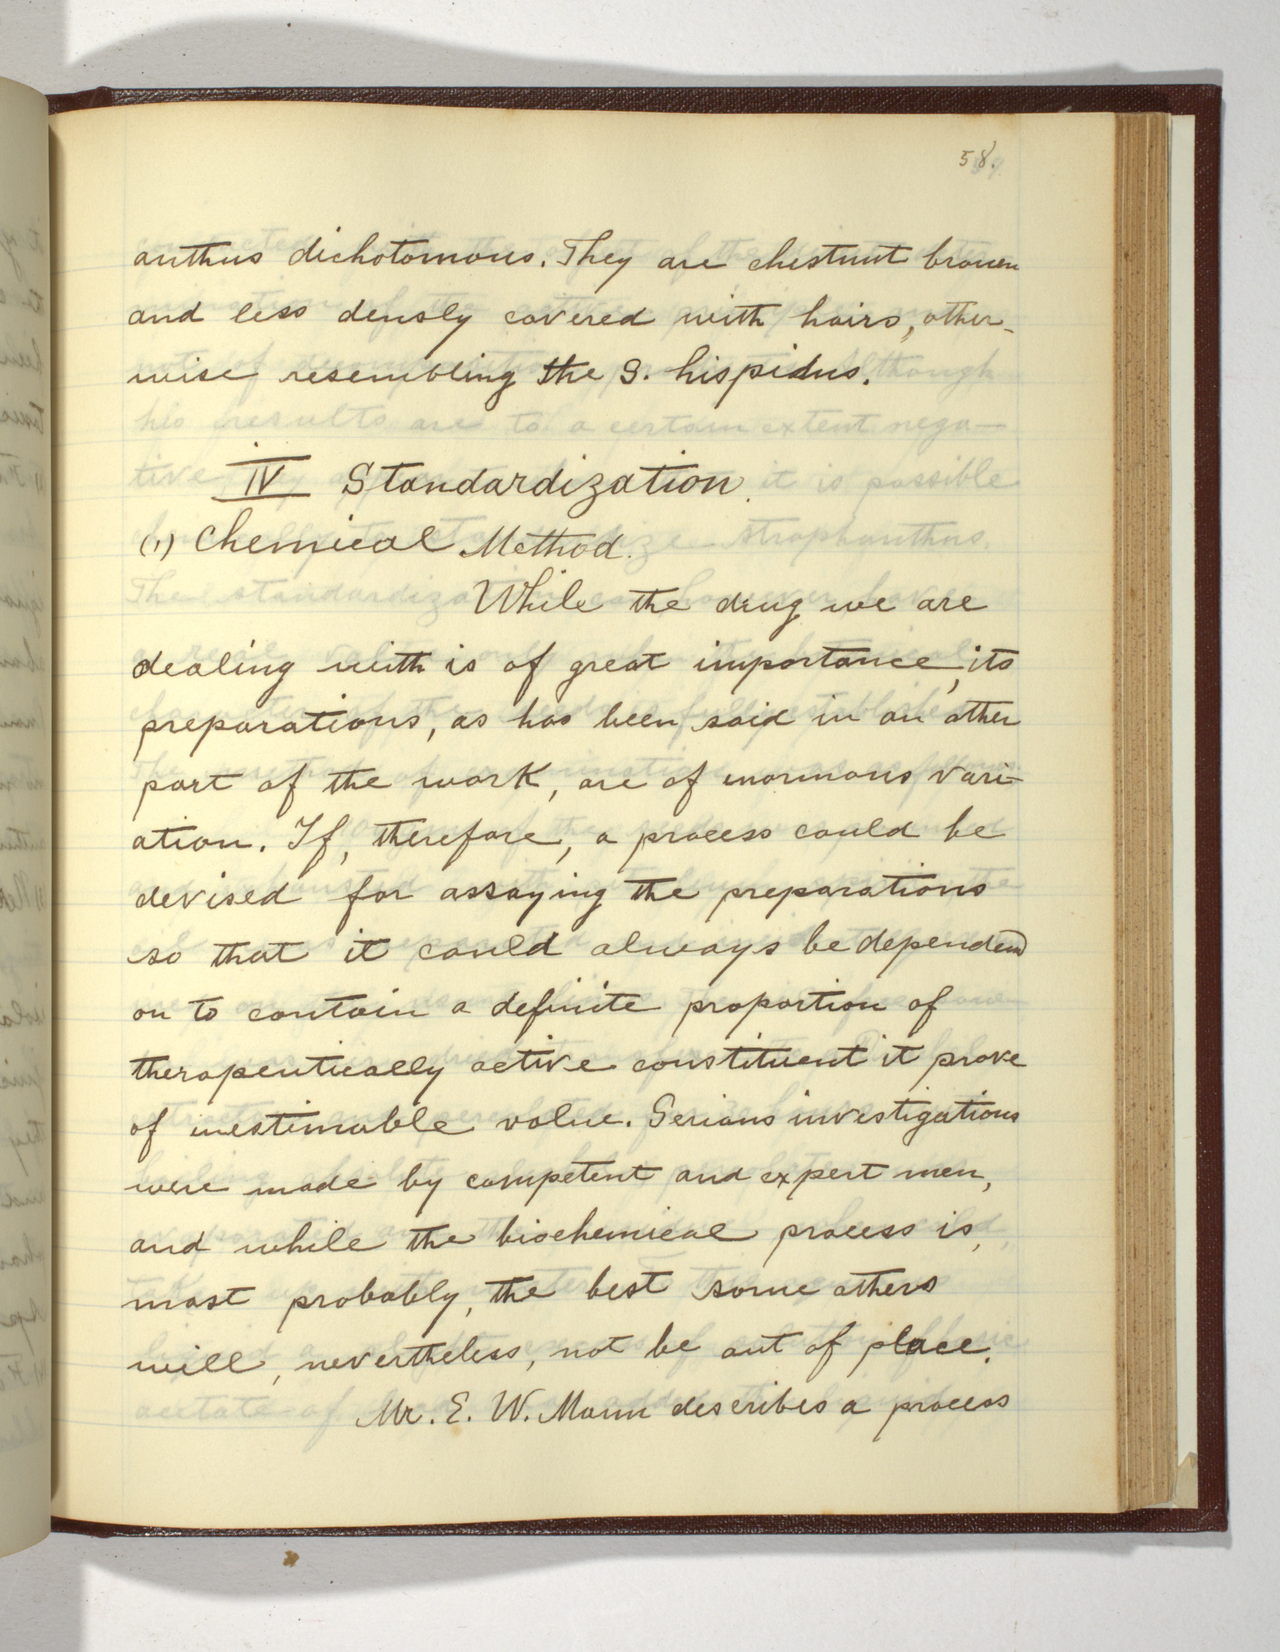 58.
anthus dichotomous. They are chestnut brown
and less densly covered with hairs, other-
wise resembling the S. hispidus.
IV Standardization.
(1) Chemical Method.
While the drug we are
dealing with is of great importance, its
preparations, as has been said in an other
part of the work, are of enormous vari-
ation. If, therefore, a process could be
devised for assaying the preparations
so that it could always be depended
on to contain a definite proportion of
therapeutically active constituent it prove
of inestimable value. Serious investigations
were made by competent and expert men,
and while the biochemical process is,
most probably, the best some others
will, nevertheless, not be out of place.
Mr. E. W. Mann describes a process